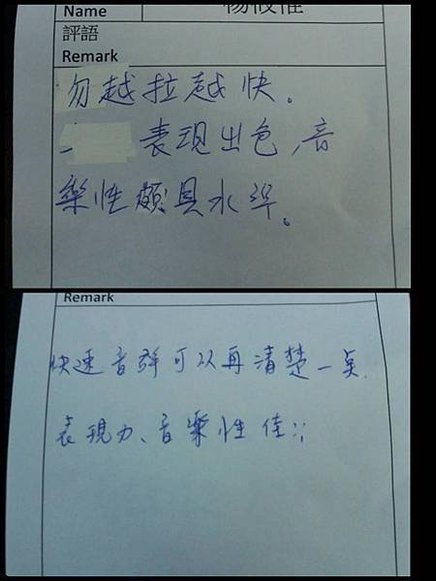 Name
評語
Remark
勿越拉越快。
表現出色,音
樂性頗具水準。
Remark
快速音群可以再清楚一点.
表現力、音樂性佳!;